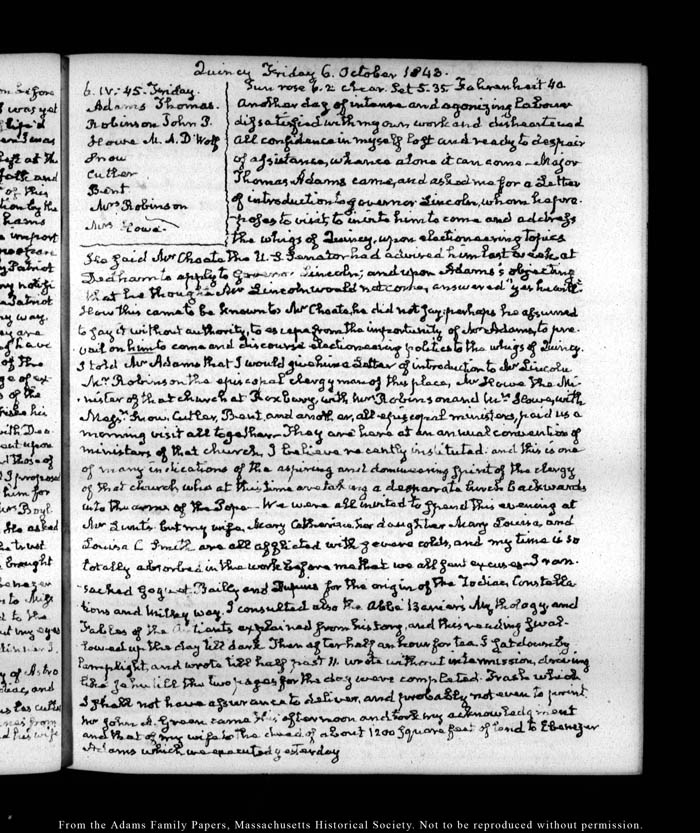 Quincy Friday 6. October 1843.
6. IV:45. Friday.
Adams Thomas.
Robinson John P.
Howe M. A. D'Wolf
Snow
Cutler
Bent
Mrs Robinson
Mrs Howe.
Sun rose 6.2 clear. Set 5.35 Fahrenheit 40
Another day of intense and agonizing labour
dissatisfied with my own work and disheartened
all confidence in myself lost and ready to despair
of assistance, whence alone it can come. Major
Thomas Adams came, and asked me for a Letter
of introduction to governor Lincoln, whom he pro-
poses to visit, to invite him to come and address
the whigs of Quincy, upon electioneering topics
He said Mr Choate the U.S. Senator had advised him last week at
Dedham to apply to Governor Lincoln; and upon Adams's objecting
that he thought Mr Lincoln would not come, answered "yes he will".
How this came to be known to Mr Choate, he did not say: perhaps he assumed
to say it without authority, to escape from the importunity of Mr Adams, to pre-
vail on him to come and discourse electioneering politics to the whigs of Quincy.
I told Mr Adams that I would give him a Letter of introduction to Mr Lincoln
Mr Robinson the episcopal clergyman of this place, Mr Howe the Mi-
nister of that church at Roxbury, with Mrs Robinson and Mrs Howe, with
Messrs Snow, Cutler, Bent, and another, all episcopal ministers, paid us a
morning visit all together. They are here at an annual convention of
ministers of that church, I believe recently instituted: and this is one
of many indications of the aspiring and domineering spirit of the clergy
of that church who at this time are taking a desperate lurch backwards
into the arms of the Pope. We were all invited to spend this evening at
Mr Lunt's. but my wife, Mary Catherine, her daughter Mary Louisa, and
Louisa C. Smith are all afflicted with severe colds, and my time is so
totally absorbed in the work before me that we all sent excuses. I ran-
sacked Goguet, Bailly and Dupuis for the origin of the Zodiac, Constella
tions and Milky way. I consulted also the Abbé Banier's Mythology, and
Fables of the Antients explained from history, and this reading swal-
lowed up the day till dark. Then after half an hour for tea. I sat down by
lamplight, and wrote till half past 11. wrote without intermission,
till the two pages for the day were completed. Trash which
I shall not have assurance to deliver, and probably not even to print
Mr John A. Green came this afternoon and took my acknowledgment
and that of my wife to the deed of about 1200 square feet of land to Ebenezer
Adams which we executed yesterday
From the Adams Family Papers, Massachusetts Historical Society. Not to be reproduced without permission.